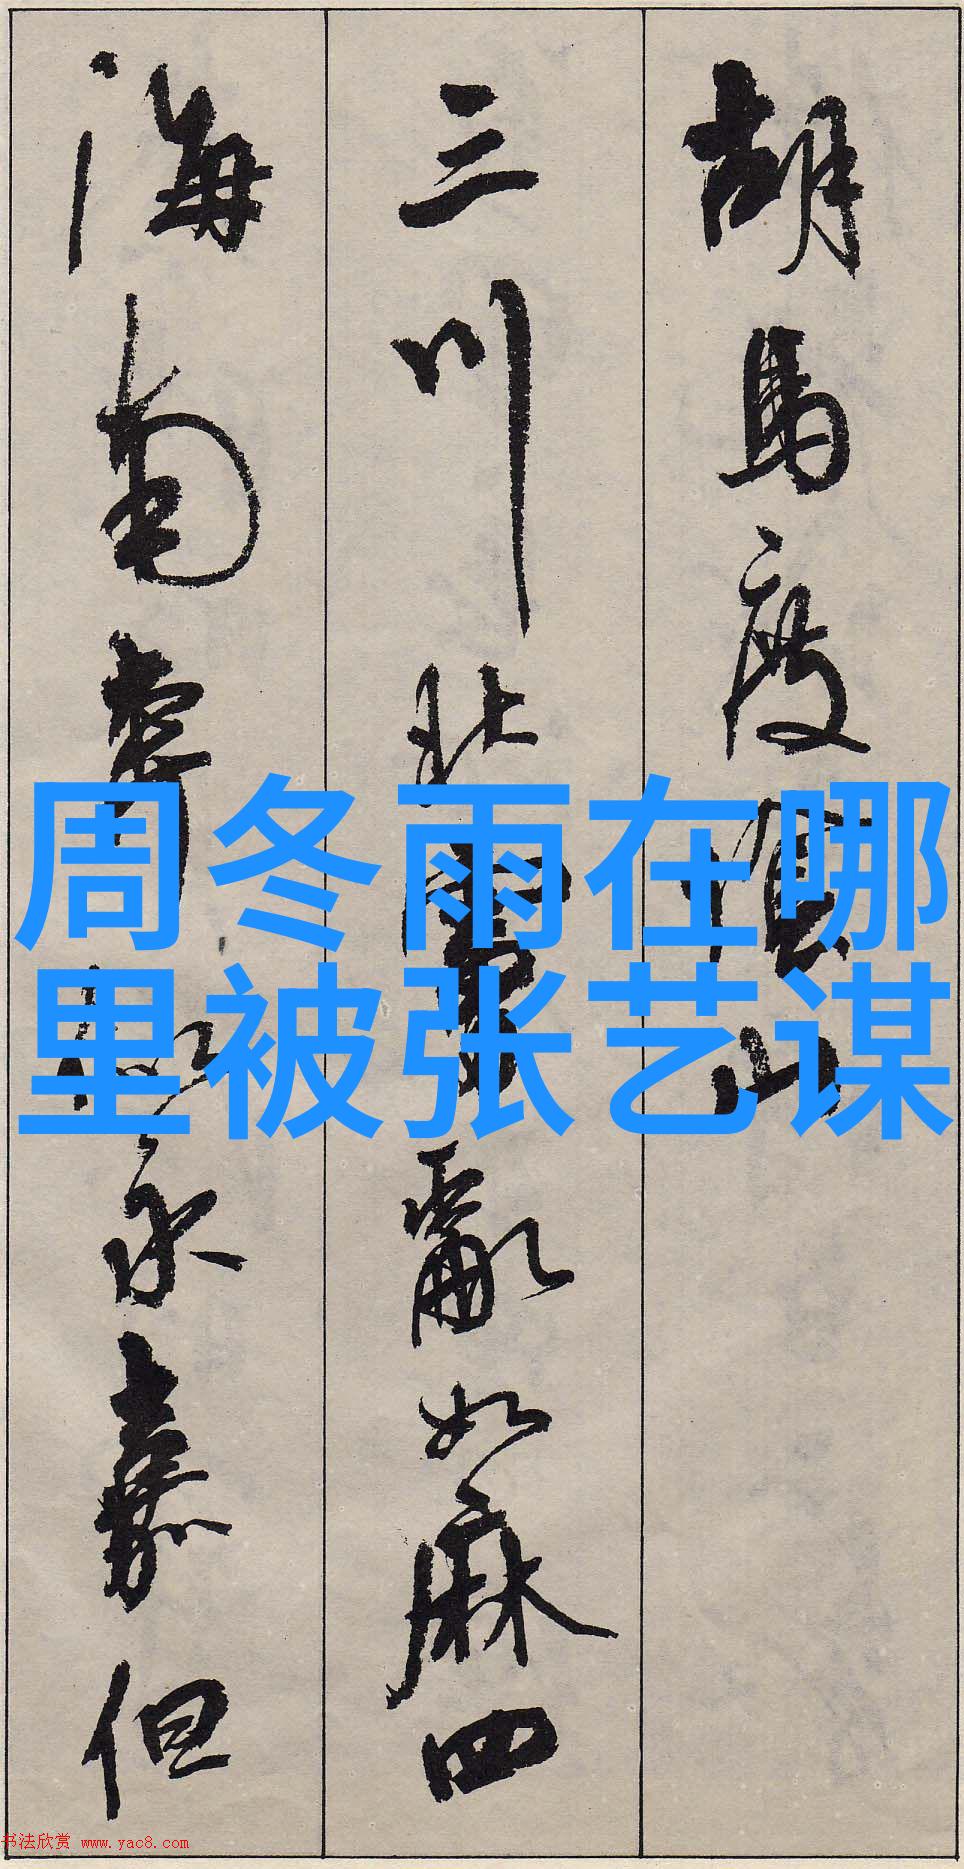 胡马度
山
三川北
乱如麻四
海南奔似永嘉但
周冬雨在哪
里被张艺谋
书法欣赏 www.yac8.com